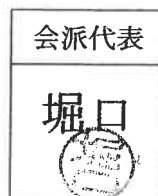 会派代表
堀口